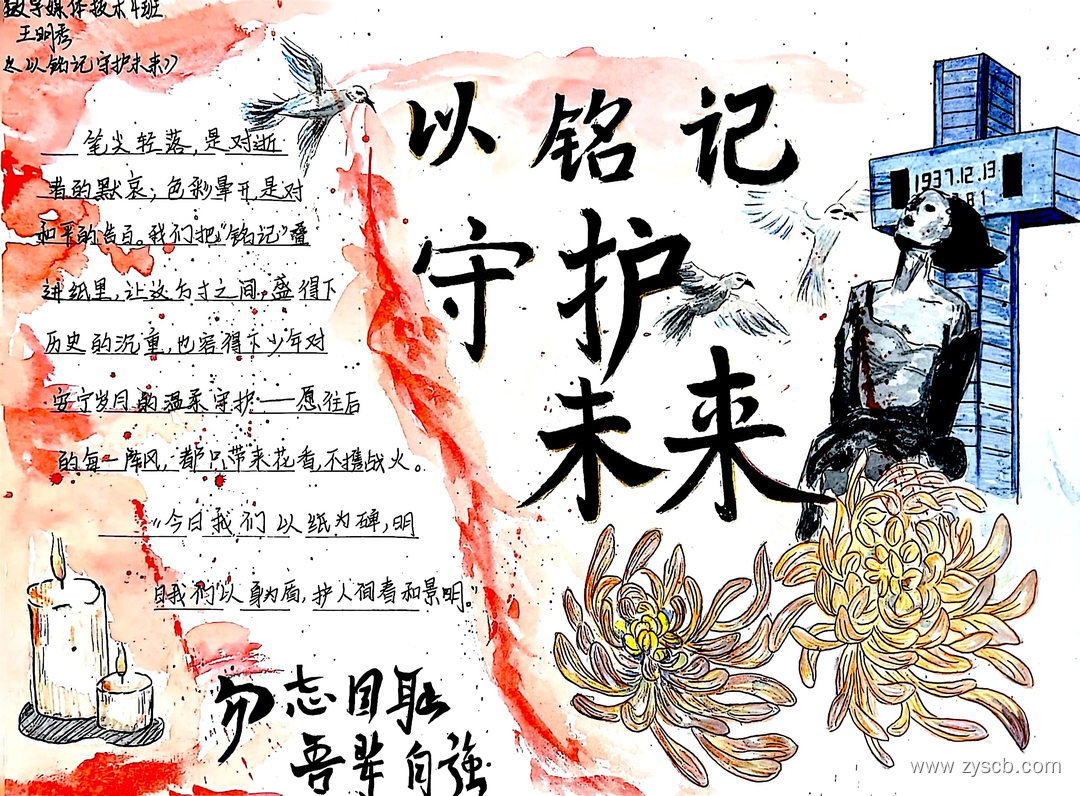 数字媒体技术4班
王明秀
《以铭记守护未来》
以铭记
守护
未来
1937.12.13
笔尖轻落,是对逝
者的默哀;色彩晕开,是对
和平的告白。我们把“铭记”叠
进纸里,让这方寸之间,盛得下
历史的沉重,也容得下少年对
安宁岁月的温柔守护——愿往后
的每一阵风,都只带来花香,不携战火。
“今日我们以纸为碑,明
日我们以身为盾,护人间春和景明。”
勿忘国耻
吾辈自强
www.zyscb.com